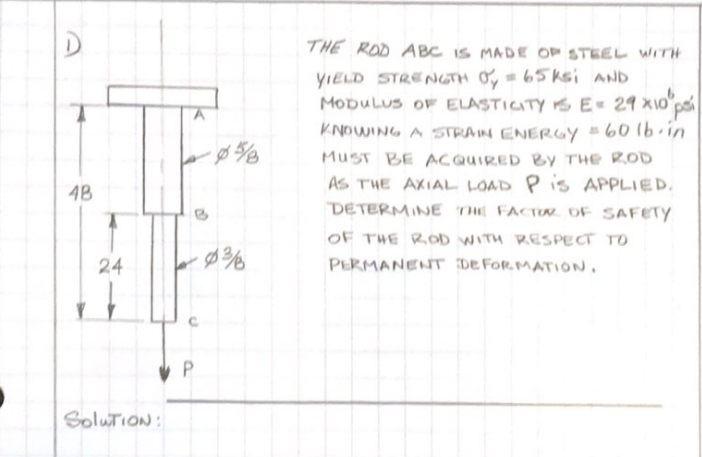 D
THE ROD ABC IS MADE OF STEEL WITH
YIELD STRENGTH σy = 65 ksi AND
MODULUS OF ELASTICITY IS E = 29 x10⁶ psi
KNOWING A STRAIN ENERGY = 60 lb·in
MUST BE ACQUIRED BY THE ROD
AS THE AXIAL LOAD P IS APPLIED.
DETERMINE THE FACTOR OF SAFETY
OF THE ROD WITH RESPECT TO
PERMANENT DEFORMATION.
A
ø 5/8
48
B
24
ø 3/8
C
P
SOLUTION: